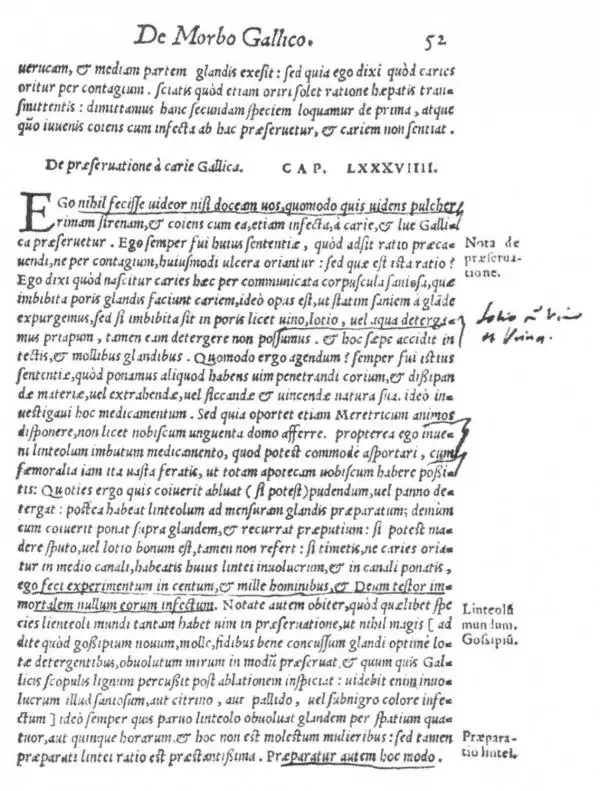 De Morbo Gallico. 52
uerucam, & mediam partem glandis exesit: sed quia ego dixi quòd caries
oritur per contagium. sciatis quòd etiam oriri solet ratione hæpatis tran-
smittentis: dimittamus hanc secundam speciem loquamur de prima, atque
quo iuuenis coiens cum infecta ab hac præseruetur, & cariem non sentiat.
De præseruatione à carie Gallica. CAP. LXXXVIIII.
EGo nihil fecisse uideor nisi doceam uos, quomodo quis uidens pulcher
rimam sirenam, & coiens cum ea, etiam infecta, à carie, & lue Galli-
ca præseruetur. Ego semper fui huius sententiæ, quòd adsit ratio præca-
uendi, ne per contagium, huiusmodi ulcera oriantur: sed quæ est ista ratio?
Ego dixi quòd nascitur caries hæc per communicata corpuscula saniosa, quæ
imbibita poris glandis faciunt cariem, ideò opus est, ut statim saniem à glãde
expurgemus, sed si imbibita sit in poris licet uino, lotio, uel aqua deterga-
mus priapum, tamen eam detergere non possumus. & hoc sæpe accidit in
tectis, & mollibus glandibus. Quomodo ergo agendum? semper fui istius
sententiæ, quòd ponamus aliquod habens uim penetrandi corium, & dissipan
dæ materiæ, uel extrahendæ, uel siccandæ & uincendæ natura sua. ideò in-
uestigaui hoc medicamentum. Sed quia oportet etiam Meretricum animos
disponere, non licet nobiscum unguenta domo afferre. propterea ego inue-
ni linteolum imbutum medicamento, quod potest commode asportari, cum
fœmoralia iam ita uasta feratis, ut totam apotecam uobiscum habere possi-
tis: Quoties ergo quis coiuerit abluat (si potest) pudendum, uel panno de-
tergat: postea habeat linteolum ad mensuram glandis præparatum; demum
cum coiuerit ponat supra glandem, & recurrat præputium: si potest ma-
dere sputo, uel lotio bonum est, tamen non refert: si timetis, ne caries oria-
tur in medio canali, habeatis huius lintei inuolucrum, & in canali ponatis,
ego feci experimentum in centum, & mille hominibus, & Deum testor im-
mortalem nullum eorum infectum. Notate autem obiter, quòd quælibet spe
cies lienteoli mundi tantam habet uim in præseruatione, ut nihil magis [ ad
dite quòd gossipium nouum, molle, fidibus bene concussum glandi optimè lo-
tæ detergentibus, obuolutum mirum in modũ præseruat. & quum quis Gal-
licis scopulis lignum percussit post ablationem inspiciat: uidebit enim inuo-
lucrum illud saniosum, aut citrino, aut pallido, uel subnigro colore infe-
ctum ] ideò semper quis paruo linteolo obuoluat glandem per spatium qua-
tuor, aut quinque horarum, & hoc non est molestum mulieribus: sed tamen
præparati lintei ratio est præstantissima. Præparatur autem hoc modo.
Nota de
præserua-
tione.
Linteolũ
mundum.
Gossipiũ.
Præpara-
tio lintei.